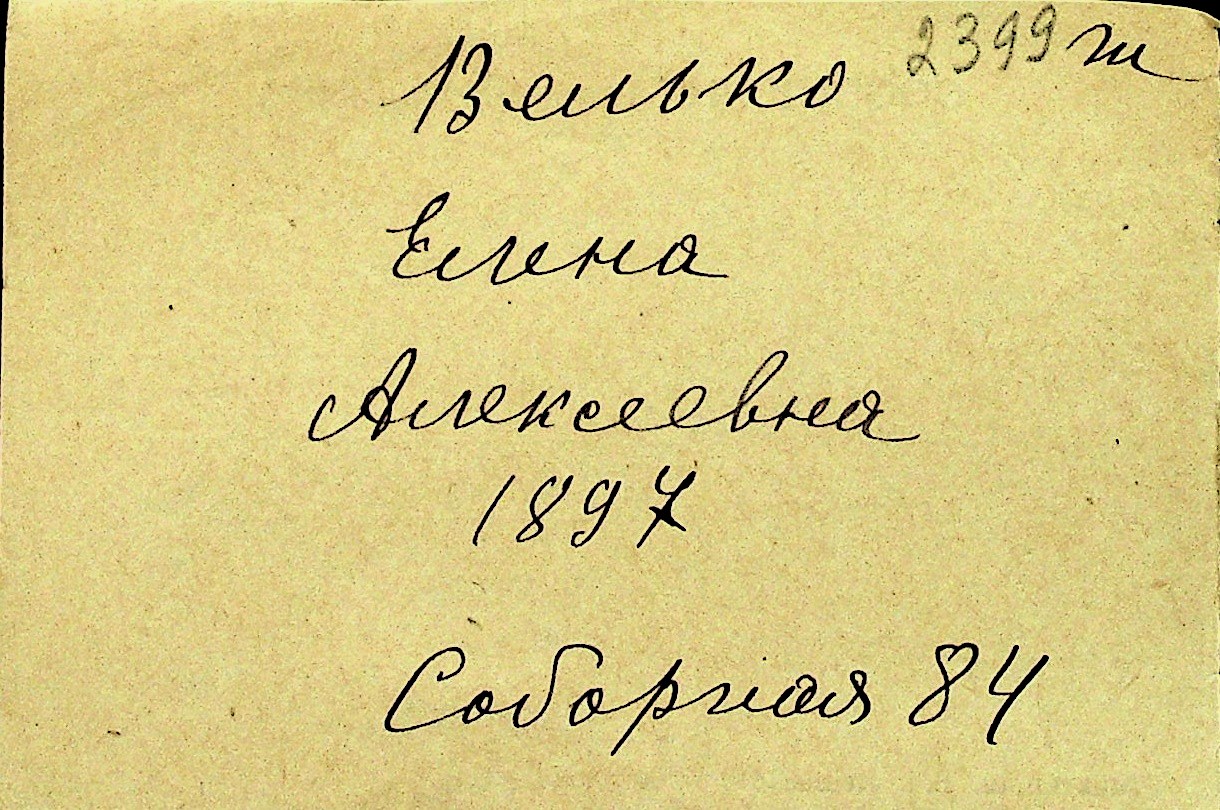 Велько 2399 т
Елена
Алексеевна
1897
Соборная 84